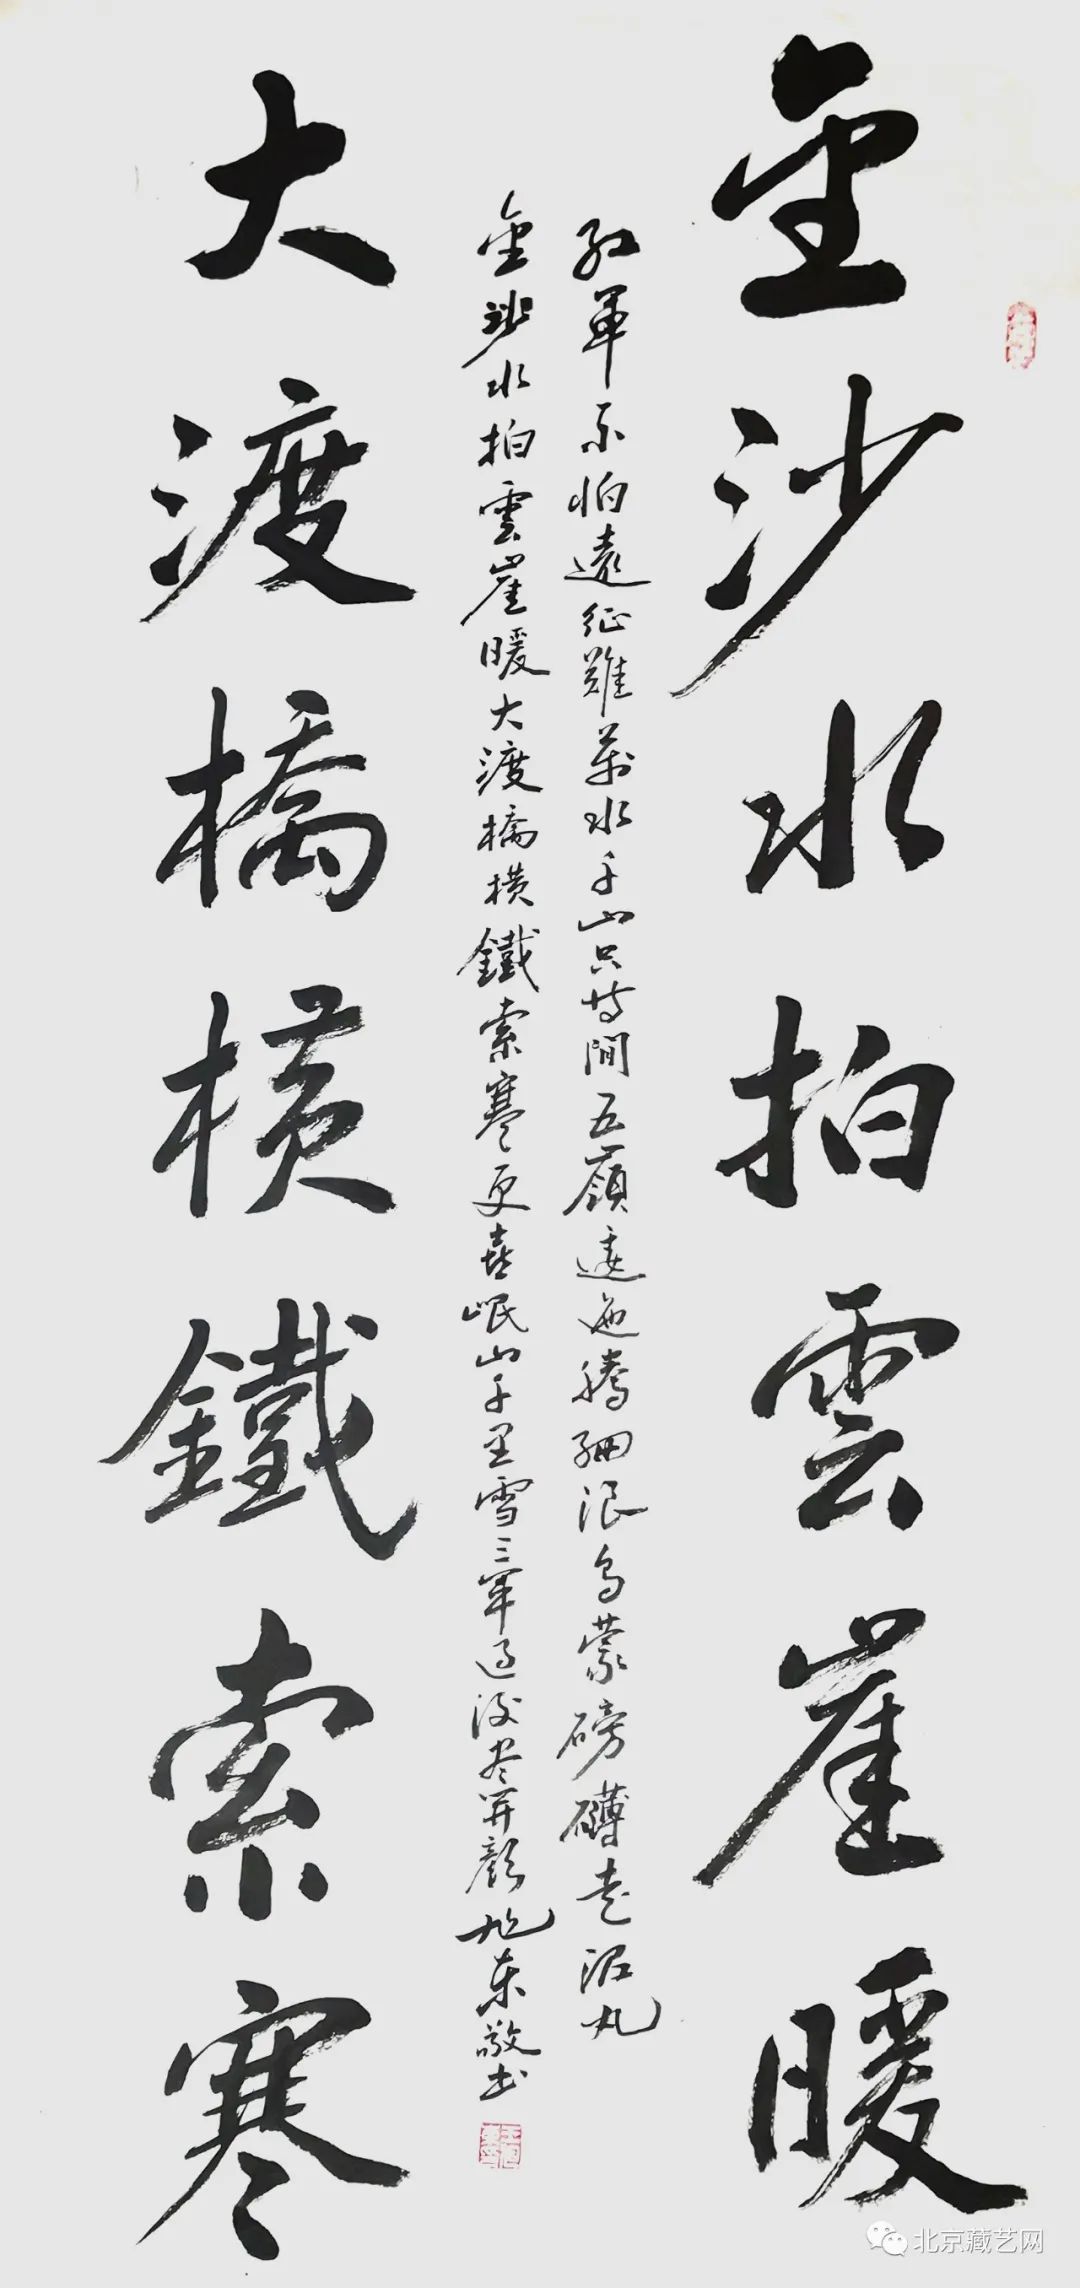 金沙水拍雲崖暖
紅軍不怕遠征難萬水千山只等閒五嶺逶迤騰細浪烏蒙磅礴走泥丸
金沙水拍雲崖暖大渡橋橫鐵索寒更喜岷山千里雪三軍過後盡開顏旭東敬書
大渡橋橫鐵索寒
北京藏艺网